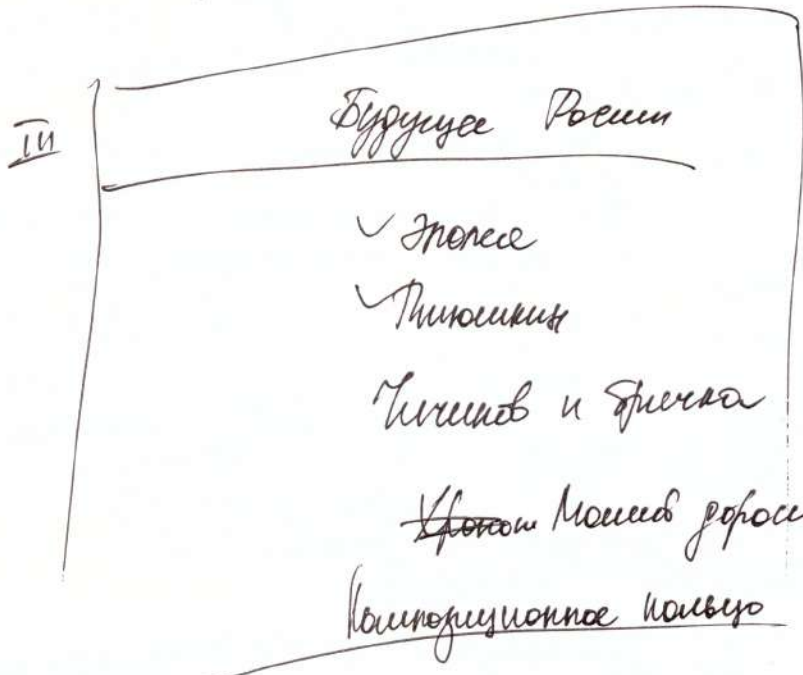 III
Будущее России
✓ Эпопея
✓ Плюшкин
Чичиков и бричка
Мотив дороги
Композиционное кольцо